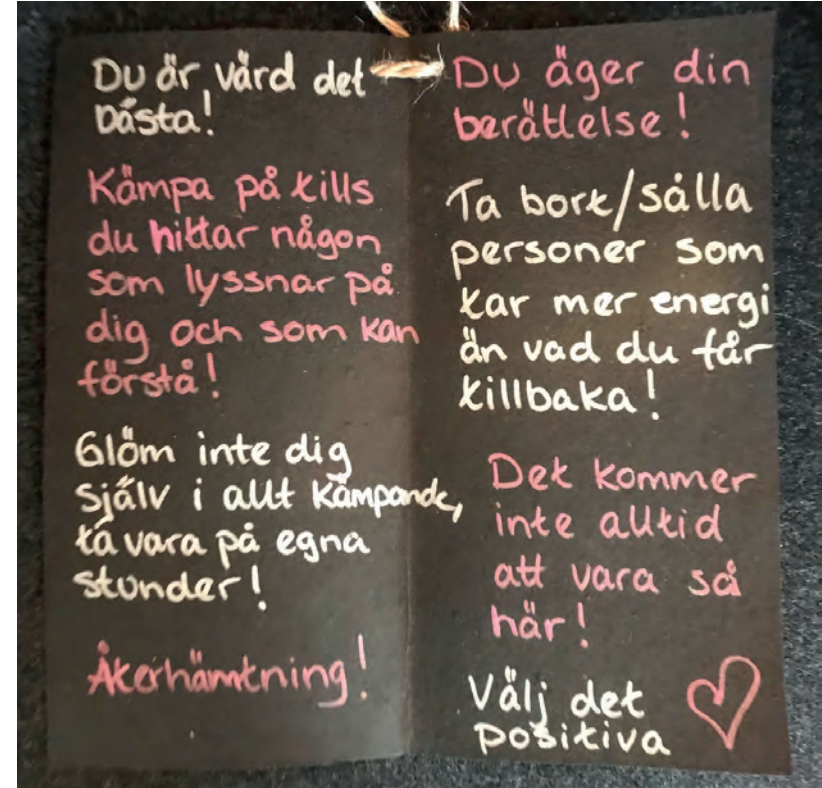 Du är värd det
bästa!
Kämpa på tills
du hittar någon
som lyssnar på
dig och som kan
förstå!
Glöm inte dig
själv i allt kämpande,
ta vara på egna
stunder!
Återhämtning!
Du äger din
berättelse!
Ta bort/sålla
personer som
tar mer energi
än vad du får
tillbaka!
Det kommer
inte alltid
att vara så
här!
Välj det
positiva